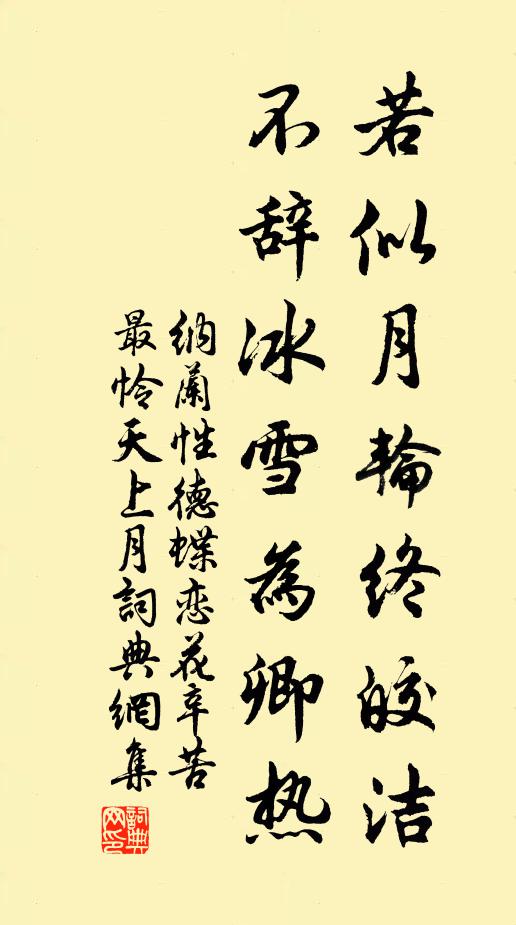 若似月輪終皎洁
不辞冰雪為卿热
納蘭性德蝶恋花辛苦
最怜天上月詞典網集
詞典
网印